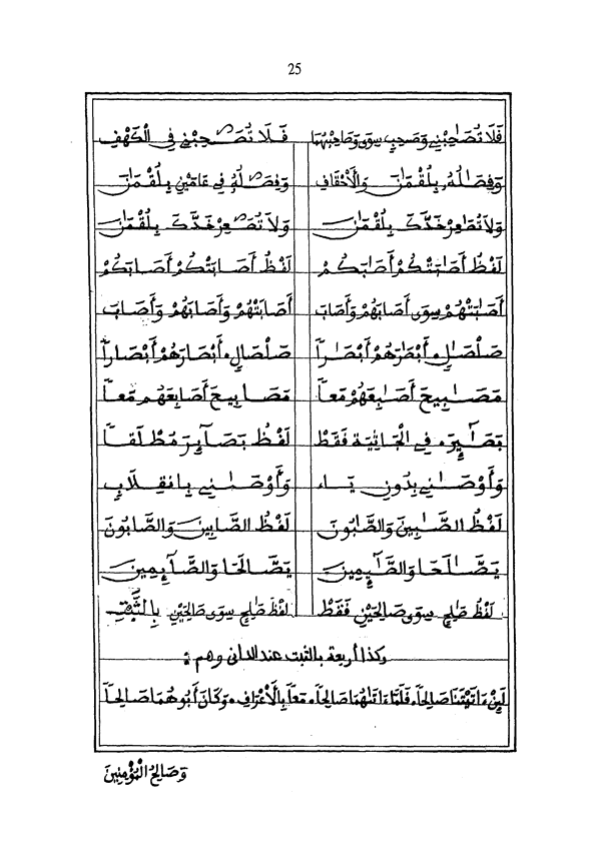 25
فَلَا تُصَٰحِبْنِي وَصَٰحِبِ سِوَى وَصَاحِبْهُمَا فَلَا تُصَٰحِبْنِي فِي الْكَهْفِ
وَفِصَٰلُهُ بِلُقْمَٰنَ وَالْأَحْقَافِ وَفِصَٰلُهُ فِي عَامَيْنِ بِلُقْمَٰنَ
وَلَا تُصَٰعِرْ خَدَّكَ بِلُقْمَٰنَ وَلَا تُصَٰعِرْ خَدَّكَ بِلُقْمَٰنَ
لَفْظُ أَصَٰبَتْكُمْ أَصَٰبَكُمْ لَفْظُ أَصَابَتْكُمْ أَصَابَكُمْ
أَصَٰبَتْهُمْ سِوَى أَصَابَهُمْ وَأَصَابَ أَصَابَتْهُمْ وَأَصَابَهُمْ وَأَصَابَ
صَلْصَٰلٍ أَبْصَٰرَهُمْ أَبْصَٰراً صَلْصَالٍ أَبْصَارَهُمْ أَبْصَاراً
مَصَٰبِيحَ أَصَٰبِعَهُمْ مَعاً مَصَابِيحَ أَصَابِعَهُمْ مَعاً
بَصَٰٓئِرُ فِي الْجَاثِيَة فَقَطْ لَفْظُ بَصَآئِرَ مُطْلَقاً
وَأَوْصَٰنِي بِدُونِ يَاء وَأَوْصَٰنِي بِانقِلَابٍ
لَفْظُ الصَّٰبِينَ وَالصَّٰبُونَ لَفْظُ الصَّابِينَ وَالصَّابُونَ
يَصَّٰلَحَا وَالصَّٰٓئِمِينَ يَصَّالَحَا وَالصَّآئِمِينَ
لَفْظُ صَٰلِحٍ سِوَى صَالِحَيْنِ فَقَطْ لَفْظُ صَٰلِحٍ سِوَى صَالِحَيْنِ بِالثَّبْتِ
وكذا أربعة بالثبت عند الداني وهم :
لَئِنْ ءَاتَيْتَنَا صَالِحاً، فَلَمَّا ءَاتَاهُمَا صَالِحاً، مَعاً بِالْأَعْرَافِ، وَكَانَ أَبُوهُمَا صَالِحاً
وَصَالِحُ الْمُؤْمِنِينَ